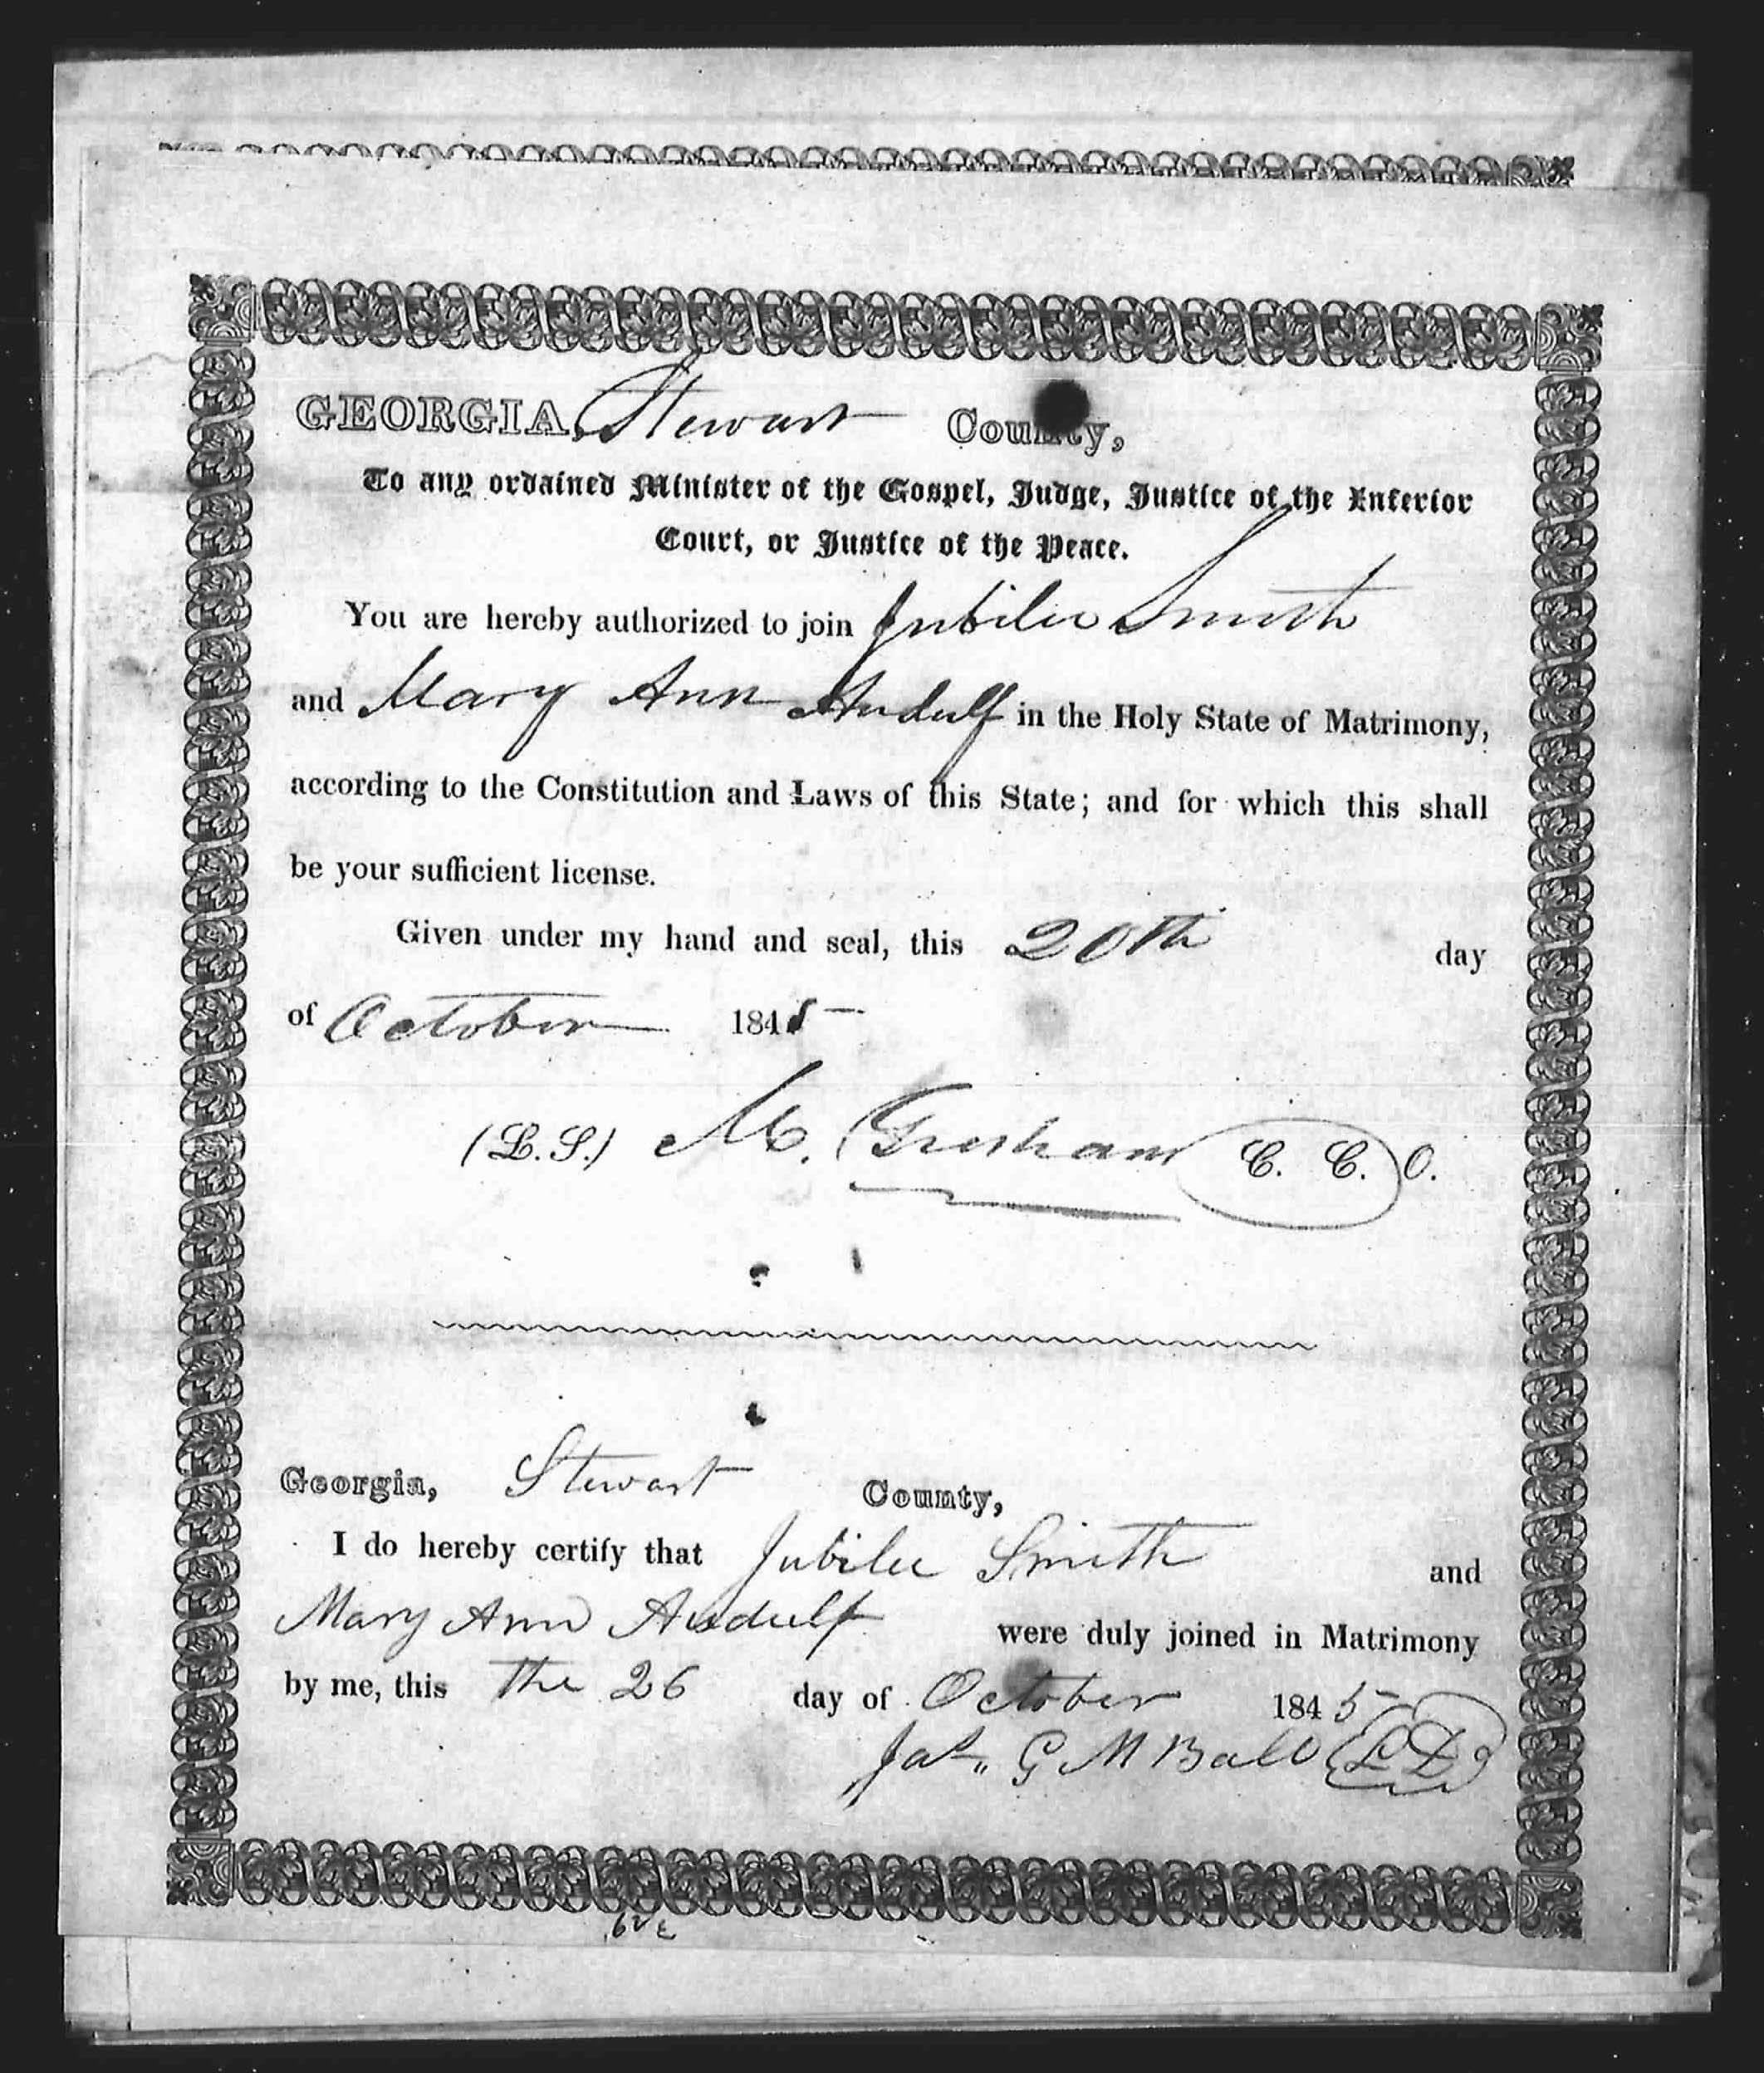 GEORGIA, Stewart County,
To any ordained Minister of the Gospel, Judge, Justice of the Inferior
Court, or Justice of the Peace.
You are hereby authorized to join Jubilee Smith
and Mary Ann Andulf in the Holy State of Matrimony,
according to the Constitution and Laws of this State; and for which this shall
be your sufficient license.
Given under my hand and seal, this 20th day
of October 1845
(L.S.) M. Gresham C. C. O.
Georgia, Stewart County,
I do hereby certify that Jubilee Smith and
Mary Ann Andulf were duly joined in Matrimony
by me, this the 26 day of October 1845
Jas. G M Ball